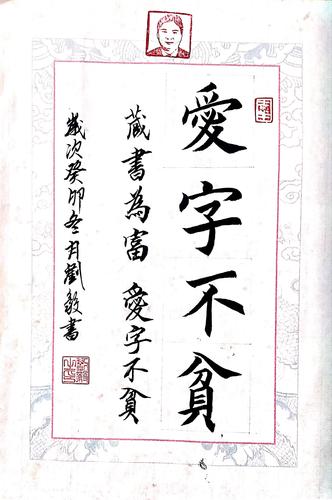 愛字不貧
藏書為富 愛字不貧
歲次癸卯冬月劉毅書